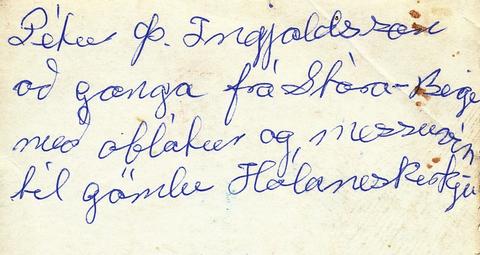 Pétur Þ. Ingjaldsson
að ganga frá Stóra-Berge
með oblátur og messuvín
til gömlu Hólaneskirkju